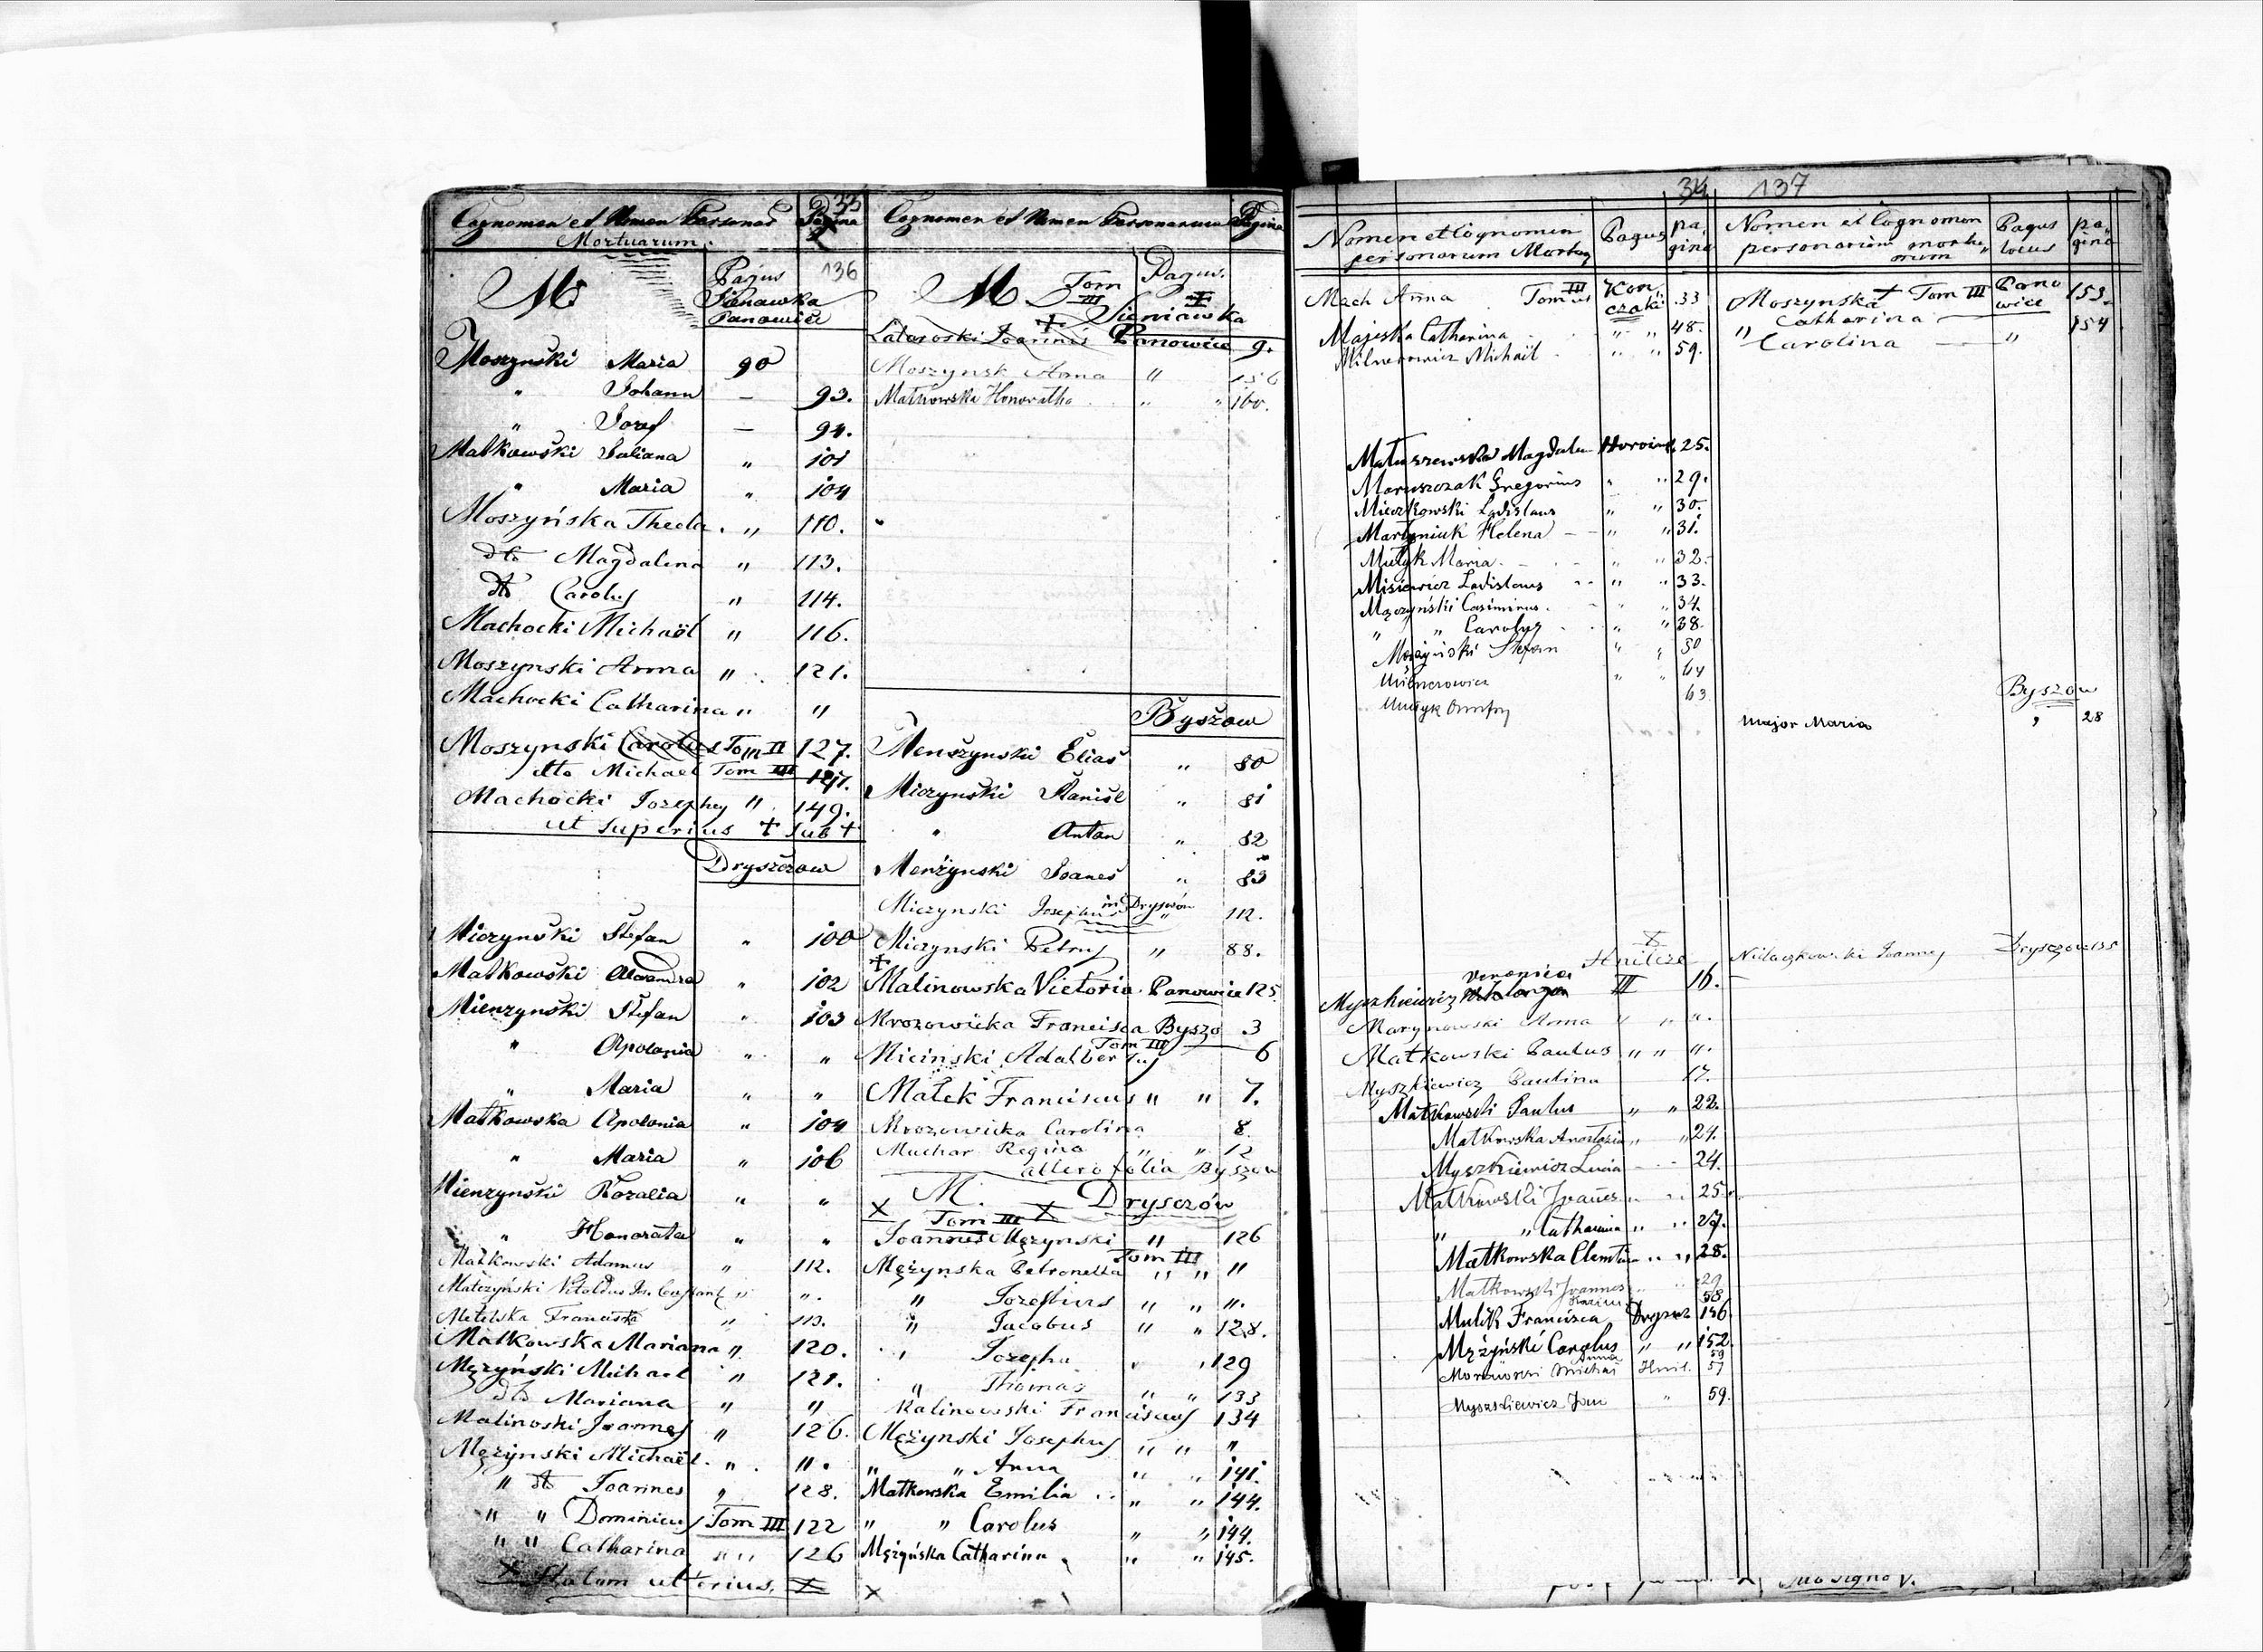 Cognomen et Nomen Personar
Mortuarum.
Pagina
35
136
M
Pagus
Panowice
Moszynski Maria 90
" Johann — 93.
" Josef — 94.
Matkowski Juliana " 101
" Maria " 104
Moszyńska Thecla. " 110.
dto Magdalina " 113.
dto Carolus " 114.
Machocki Michaël " 116.
Moszynski Anna " 121.
Machocki Catharina " "
Moszynski Carolus Tom II 127.
dtto Michael Tom III 127.
Machocki Josephus " 149.
ut superius + sub +
Dryszczow
Miczynski Stefan " 100
Matkowski " 102
Mienzynski Stefan " 103
" Apolonia " "
" Maria " "
Matkowska Apolonia " 104
" Maria " 106
Mienzynski Rozalia " "
" Honorata " "
Matkowski Adamus " 112.
Matczyński " ".
Francisca " 113.
Matkowska Mariana " 120.
Mężyński Michael " 121.
dto Mariana " "
Malinoski Joannes " 126.
Mężyński Michaël. " ".
" dt Joannes " 128.
" " Dominicus Tom III 122
" " Catharina " " 126
X Statum ulterius. X
Cognomen et Nomen Personarum Pagina
M Tom III Pagus.
Sieniawka
Joannis Panowice 9.
Moszynsk Anna " 156
Matkowska Honoratha " " 160.
Byszow
Menszynski Elias " 80
Miczynski Stanisl " 81
" Anton " 82
Menżynski Joanes " 83
Miczynski Josephus in Dryszów 112.
Miczynski Petrus " 88.
+
Malinowska Victoria. Panowice 125
Mrozowicka Francisca Byszo 3
Tom III
Miciński Adalbertus 6
Małek Franciscus " " 7.
Mrozowicka Carolina 8
Muchar Regina " " 12
altero folia Byszow
X M. X Dryszów
Tom III
Joannes Mężynski " 126
Tom III
Mężynska Petronella " " "
" Josephus " " ".
" Jacobus " " 128.
" Josepha " " 129
" Thomas " " 133
Malinowski Franciscus 134
Mężynski Josephus " " "
" " Anna " " 141.
Matkowska Emilia " " 144.
" " Carolus " " 144.
Mężyńska Catharina " " 145.
X
34 137
Nomen et Cognomen personarum Mortuo
Pagus pagina
Mach Anna Tom III Konczaki 33
Majeska Catharina " " 48.
Milnerowicz Michaël " " 59.
Matuszewska Magdale 25.
Maruszczak Gregorius " " 29.
Mieczkowski Ladislaus " " 30.
Martyniuk Helena — " " 31.
Mułyk Maria. " " 32.
Misiewicz Ladislaus " " 33.
Mączyński Casimirus. " " 34.
" " Carolus " " 38.
Stefan " " 50
Milnerowicz " " 64
63
Hnilcze
Myszkiewicz Veronica III 16.
Marynowski Anna " " ".
Matkowski Paulus " " ".
Myszkiewicz Paulina 17.
Matkowski Paulus " " 22.
Matkowska Anastazia " " 24.
Myszkiewisz Lucia - - 24.
Matkowski Joanes " " 25.
" " Catharina " " 27.
Matkowska Clemtina " " 28.
Matkowski Joannes " " 29
58
Mulek Francisca Drysz 146.
Mężyński Carolus " " 152.
Anna 59
Michał Hnil. 57
Myszkiewicz Jan " 59.
Nomen et Cognomen personarum mortuorum
Pagus locus pagina
Moszynska + Tom III Panowice 153.
Catharina
" Carolina — " 154
Byszów
Major Maria " 28
Joannes Dryszczow 135
suo signo V.